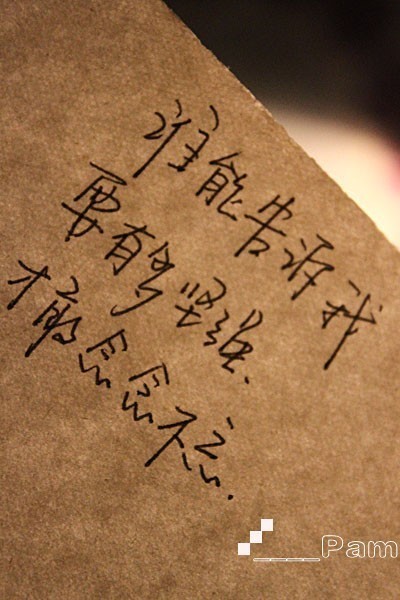 谁能告诉我
要有多坚强
才敢念念不忘.
____Pam